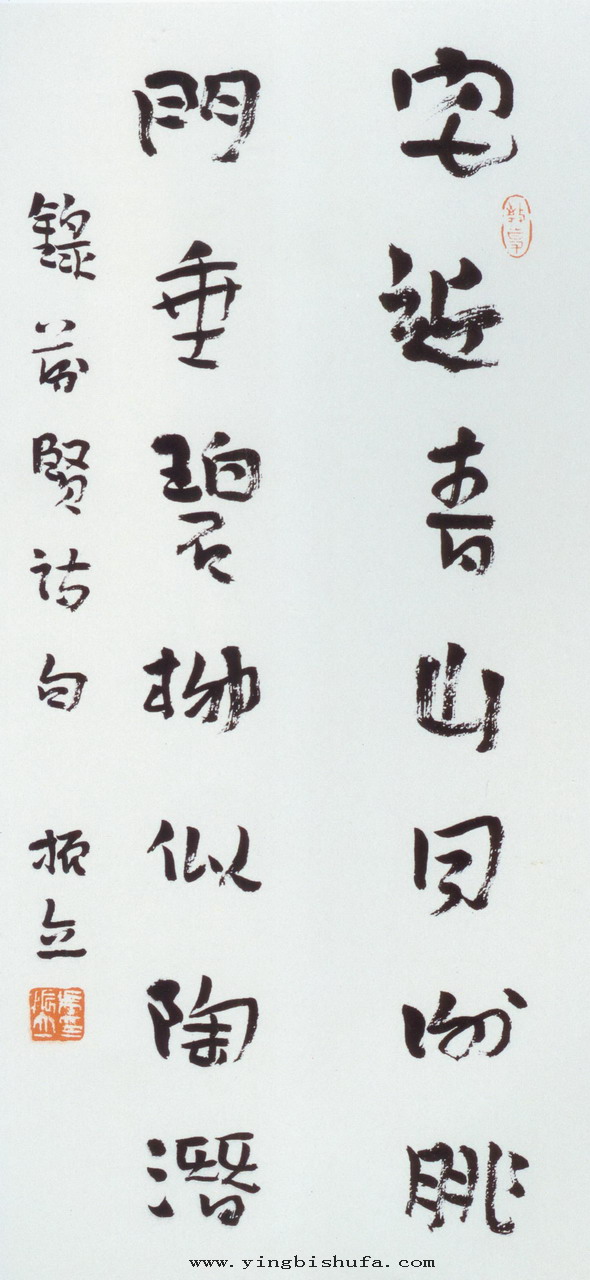 宅近青山同謝朓
門垂碧柳似陶潛
錄前賢詩句 振立
www.yingbishufa.com